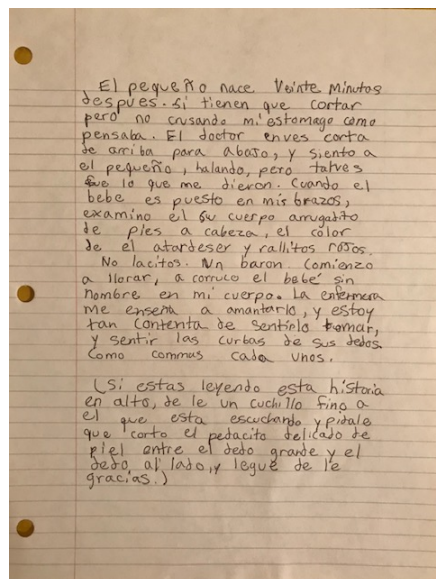 El pequeño nace Veinte Minutos
despues. Si tienen que cortar
pero no crusando mi estomago como
pensaba. El doctor enves corta
de arriba para abajo, y siento a
el pequeño, halando, pero talves
fue lo que me dieron. Cuando el
bebe es puesto en mis brazos,
examino el su cuerpo arrugadito
de pies a cabeza, el color
de el atardeser y rallitos rojos.
No lacitos. Un baron. Comienzo
a llorar, acorruco el bebé sin
nombre en mi cuerpo. La enfermera
me enseña a amantarlo, y estoy
tan contenta de sentirlo tomar,
y sentir las curbas de sus dedos.
Como commas cada unos.
(Si estas leyendo esta historia
en alto, de le un cuchillo fino a
el que esta escuchando y pidale
que corto el pedacito delicado de
piel entre el dedo grande y el
dedo al lado, y legue de le
gracias.)